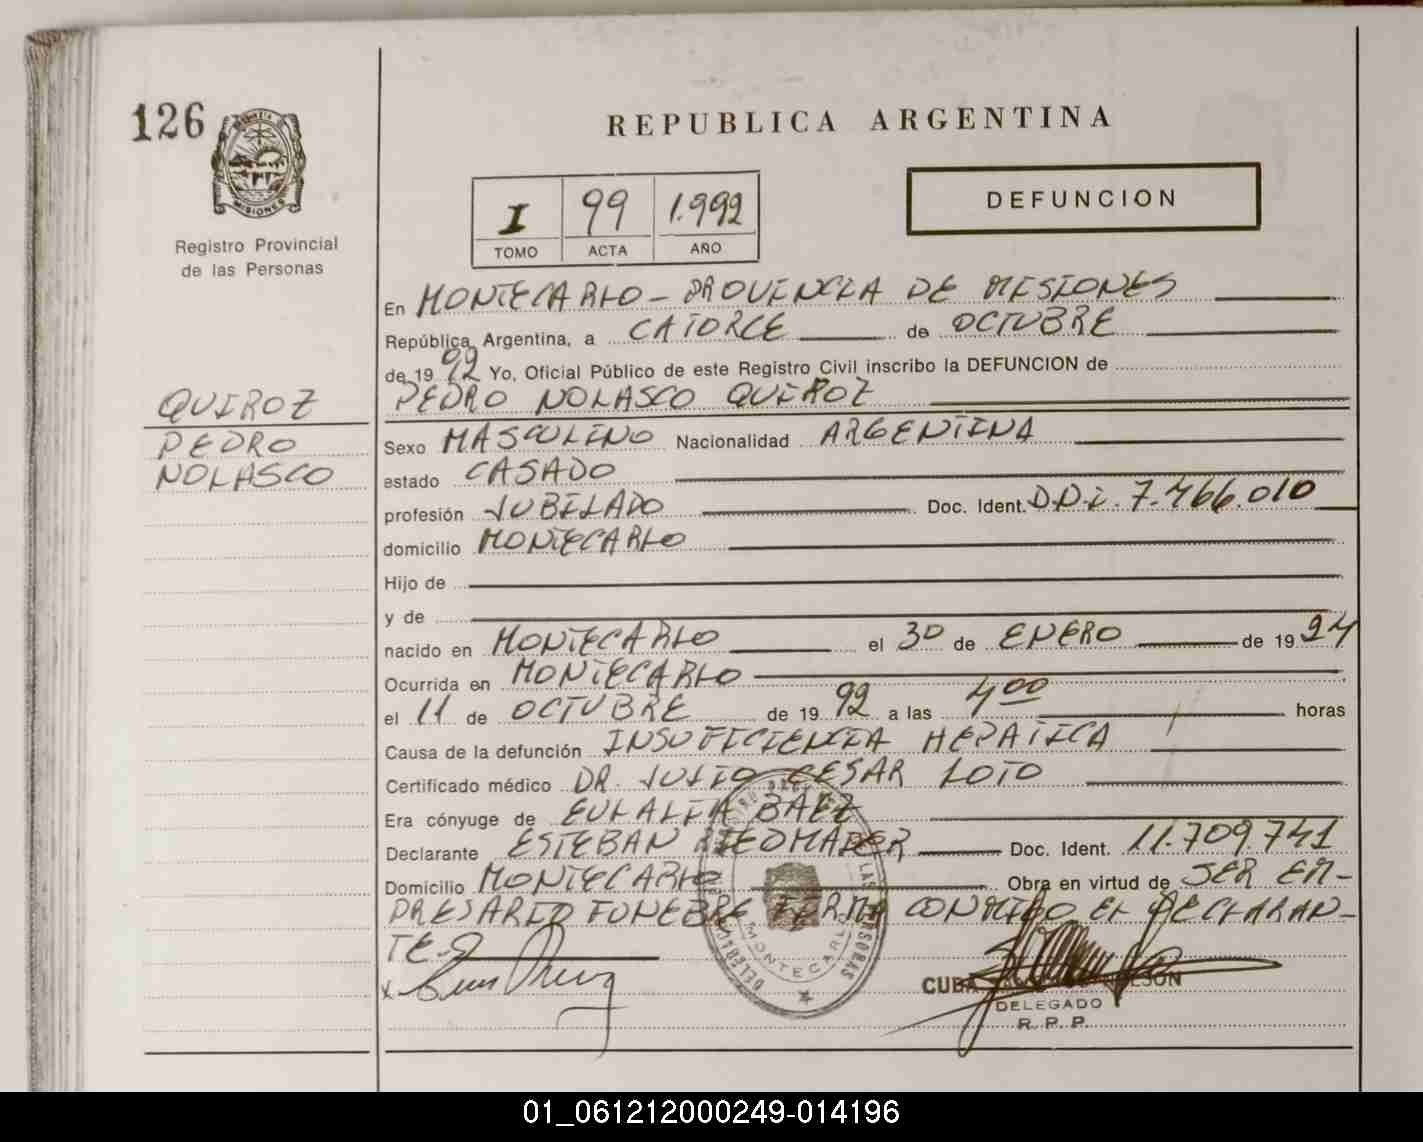 126
REPUBLICA ARGENTINA
MISIONES
Registro Provincial
de las Personas
I 99 1.992
TOMO ACTA AÑO
DEFUNCION
En MONTECARLO - PROVINCIA DE MISIONES
República Argentina, a CATORCE de OCTUBRE
de 1992 Yo, Oficial Público de este Registro Civil inscribo la DEFUNCION de
QUIROZ
PEDRO
NOLASCO
PEDRO NOLASCO QUIROZ
Sexo MASCULINO Nacionalidad ARGENTINA
estado CASADO
profesión JUBILADO Doc. Ident. D.N.I. 7.466.010
domicilio MONTECARLO
Hijo de
y de
nacido en MONTECARLO el 30 de ENERO de 1924
Ocurrida en MONTECARLO
el 11 de OCTUBRE de 1992 a las 4 00 horas
Causa de la defunción INSUFICIENCIA HEPATICA
Certificado médico DR. JULIO CESAR LOTO
Era cónyuge de EULALIA BAEZ
Declarante ESTEBAN RIEDMAIER Doc. Ident. 11.709.741
Domicilio MONTECARLO Obra en virtud de SER EM-
PRESARIO FUNEBRE FIRMA CONMIGO EL DECLARAN-
TE.-
MONTECARLO
DELEGADO
R. P. P.
01_061212000249-014196